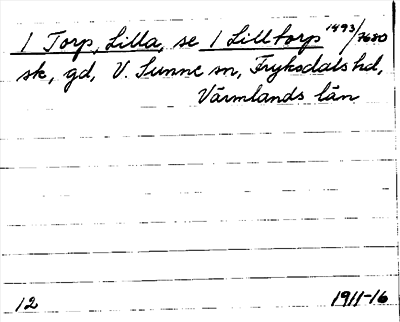 1 Torp, Lilla, se 1 Lilltorp 1493/7680
sk, gd, V. Sunne sn, Fryksdals hd,
Värmlands län
12 1911-16